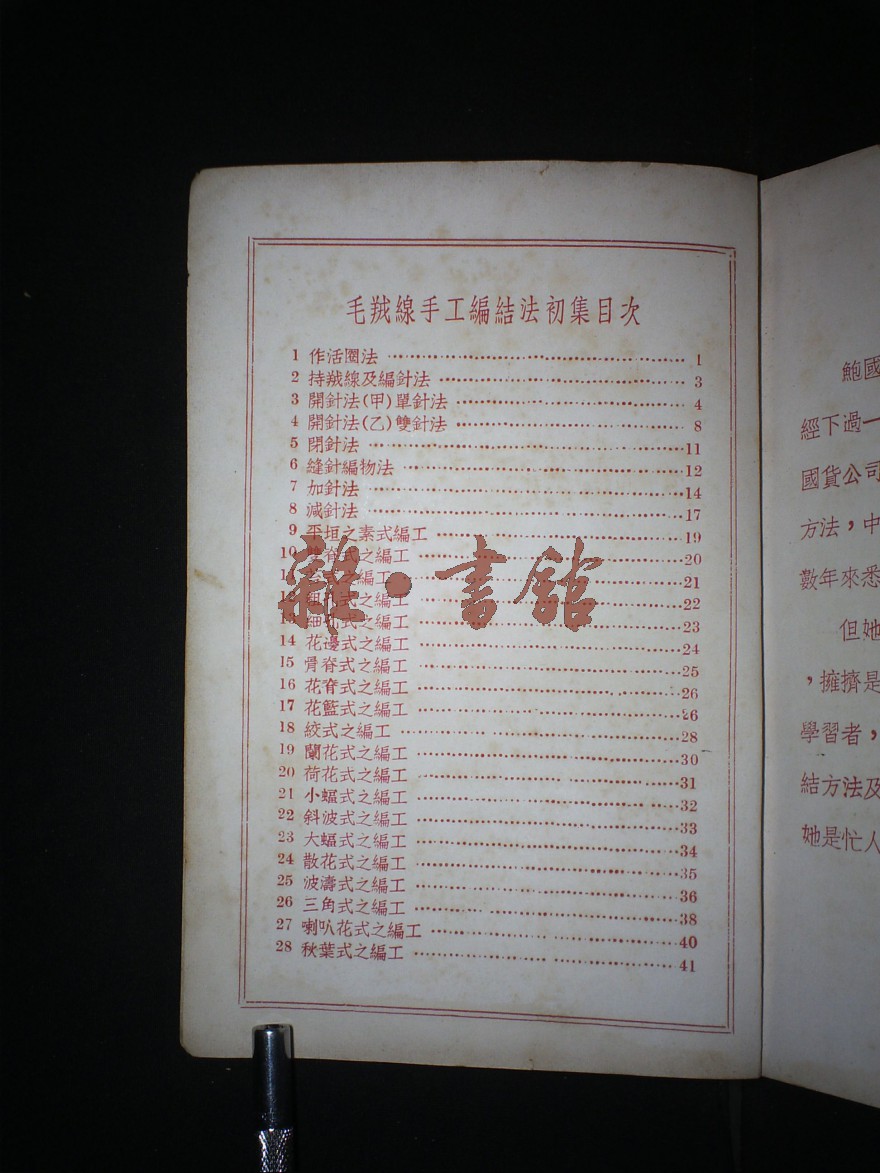 毛羢線手工編結法初集目次
1 作活圈法 1
2 持羢線及編針法 3
3 開針法(甲)單針法 4
4 開針法(乙)雙針法 8
5 閉針法 11
6 縫針編物法 12
7 加針法 14
8 減針法 17
9 平坦之素式編工 19
10 脊式之編工 20
11 編工 21
12 式之編工 22
13 細 式之編工 23
14 花邊式之編工 24
15 骨脊式之編工 25
16 花脊式之編工 26
17 花籃式之編工 26
18 絞式之編工 28
19 蘭花式之編工 30
20 荷花式之編工 31
21 小蝠式之編工 32
22 斜波式之編工 33
23 大蝠式之編工 34
24 散花式之編工 35
25 波濤式之編工 36
26 三角式之編工 38
27 喇叭花式之編工 40
28 秋葉式之編工 41
雜·書館
鮑國
經下過一
國貨公司
方法，中
數年來悉
但她
，擁擠是
學習者，
結方法及
她是忙人